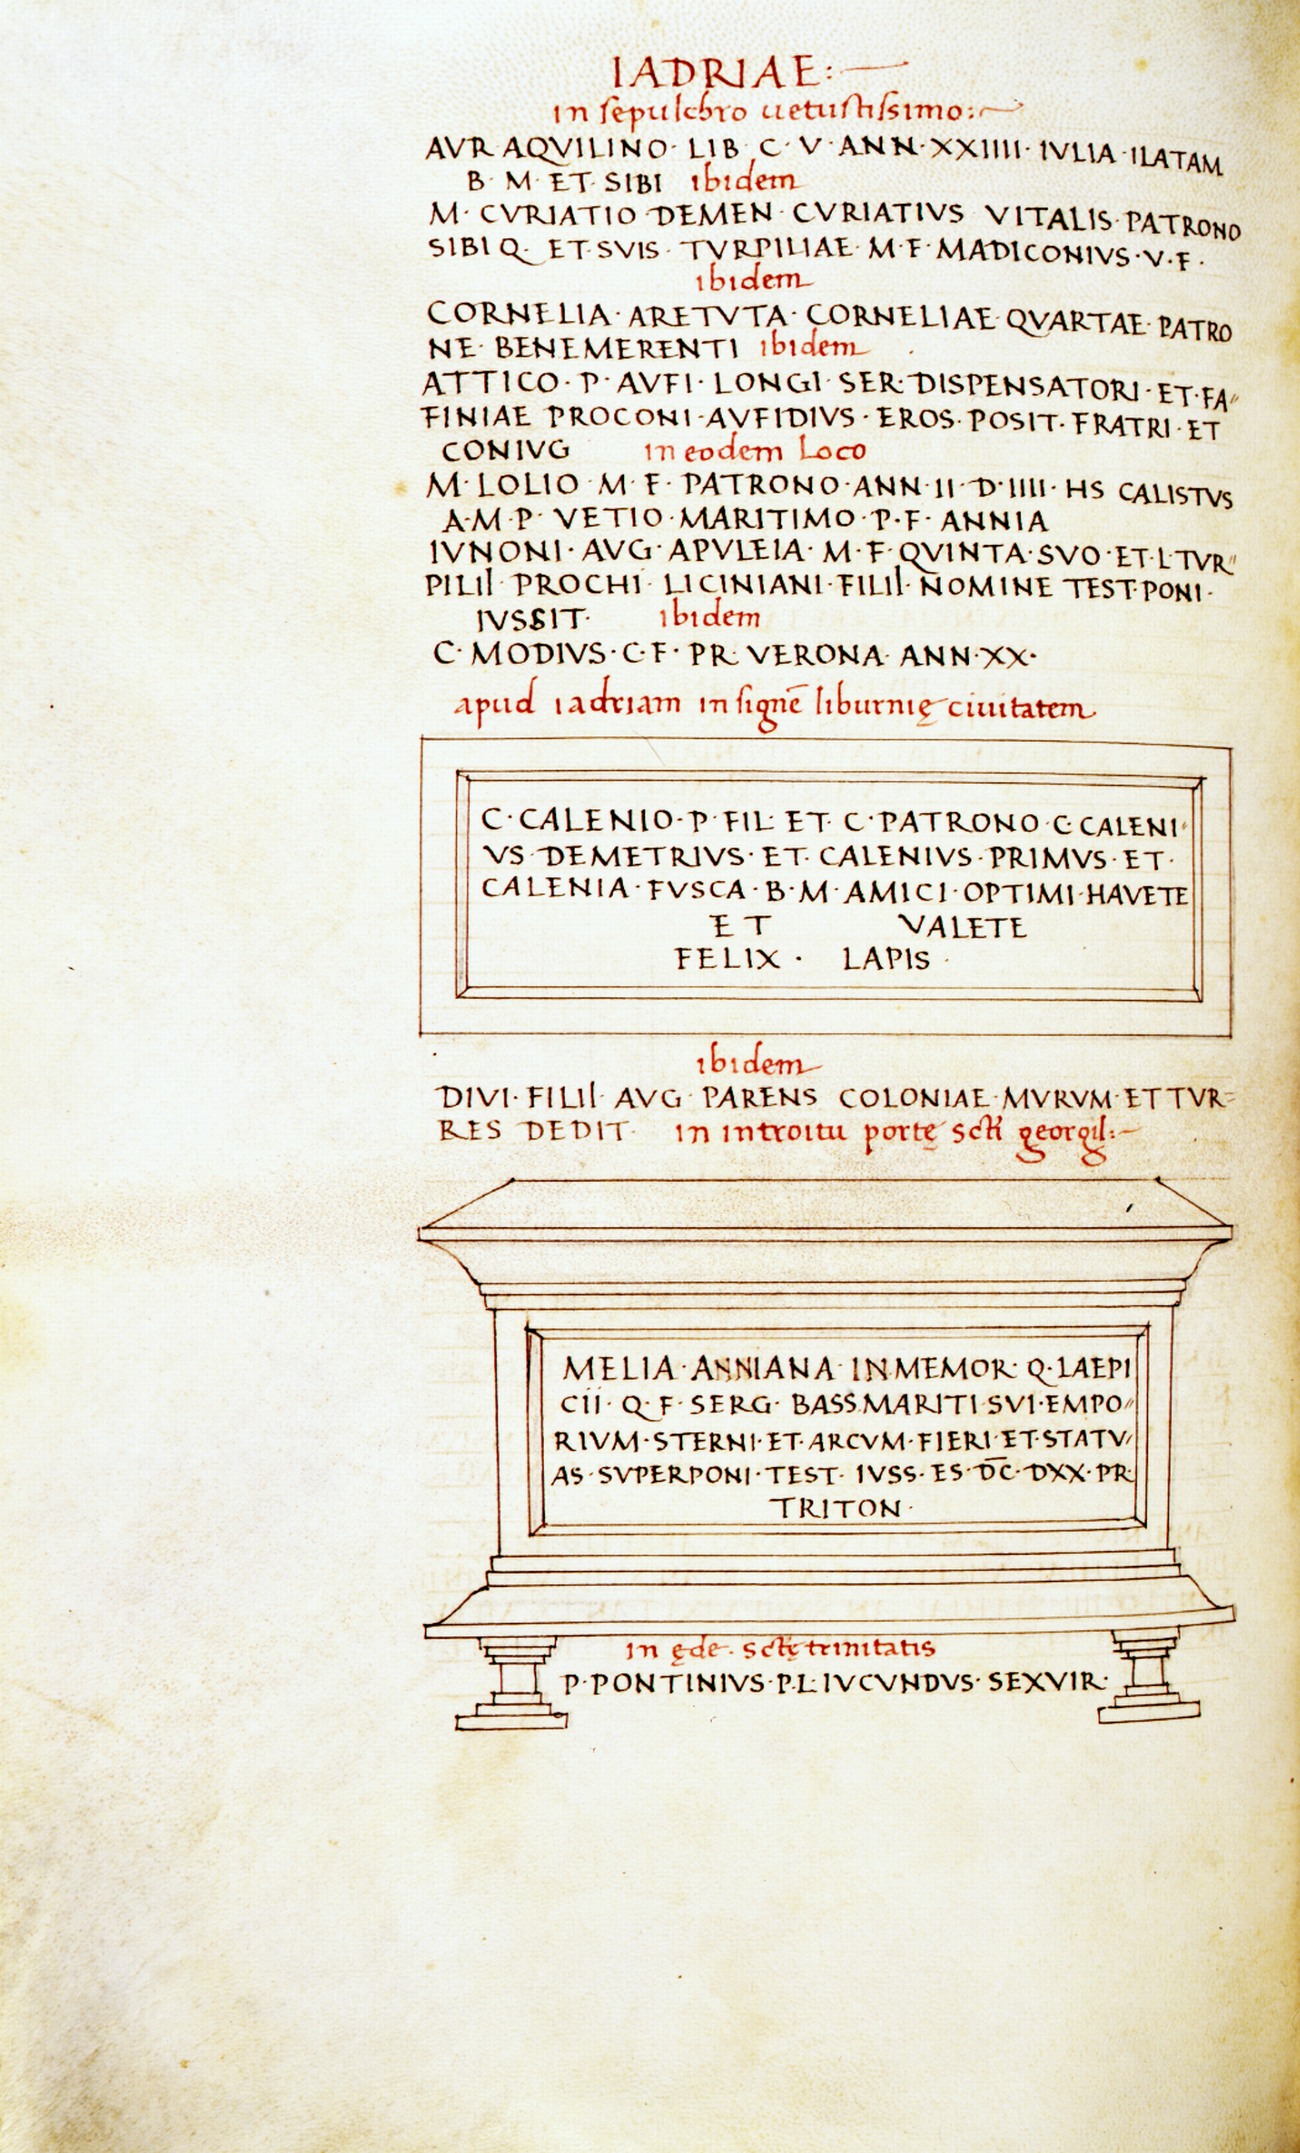 IADRIAE:
in sepulchro uetustissimo:
AVR AQVILINO · LIB C · V · ANN · XXIIII · IVLIA · ILATAM
B · M · ET · SIBI ibidem
M · CVRIATIO · DEMEN · CVRIATIVS VITALIS · PATRONO
SIBI Q · ET · SVIS · TVRPILIAE · M · F · MADICONIVS · V · F ·
ibidem
CORNELIA · ARETVTA · CORNELIAE · QVARTAE · PATRO
NE · BENEMERENTI ibidem
ATTICO · P · AVFI · LONGI · SER · DISPENSATORI · ET · FA〃
FINIAE PROCONI · AVFIDIVS · EROS · POSIT · FRATRI · ET
CONIVG in eodem Loco
M · LOLIO · M · F · PATRONO · ANN · II · D · IIII · HS CALISTVS
A · M · P · VETIO · MARITIMO · P · F · ANNIA
IVNONI · AVG · APVLEIA · M · F · QVINTA · SVO · ET · L · TVR〃
PILII · PROCHI · LICINIANI · FILII · NOMINE TEST · PONI ·
IVSSIT · ibidem
C · MODIVS · C · F · PR · VERONA · ANN · XX ·
apud iadriam insignē liburnię ciuitatem
C · CALENIO · P · FIL · ET · C · PATRONO · C · CALENI
VS · DEMETRIVS · ET · CALENIVS · PRIMVS · ET ·
CALENIA · FVSCA · B · M · AMICI · OPTIMI · HAVETE
ET VALETE
FELIX · LAPIS ·
ibidem
DIVI · FILII · AVG · PARENS COLONIAE · MVRVM · ET TVR=
RES DEDIT · in introitu portę sctī georgii:
MELIA · ANNIANA · IN MEMOR · Q · LAEPI
CII · Q · F · SERG · BASS MARITI SVI · EMPO〃
RIVM · STERNI · ET · ARCVM · FIERI · ET · STATV〃
AS · SVPERPONI · TEST · IVSS · ES · D̅C̅ · DXX · PR
TRITON ·
in ęde · sctę trinitatis
P · PONTINIVS · P · L · IVCVNDVS · SEXVIR ·